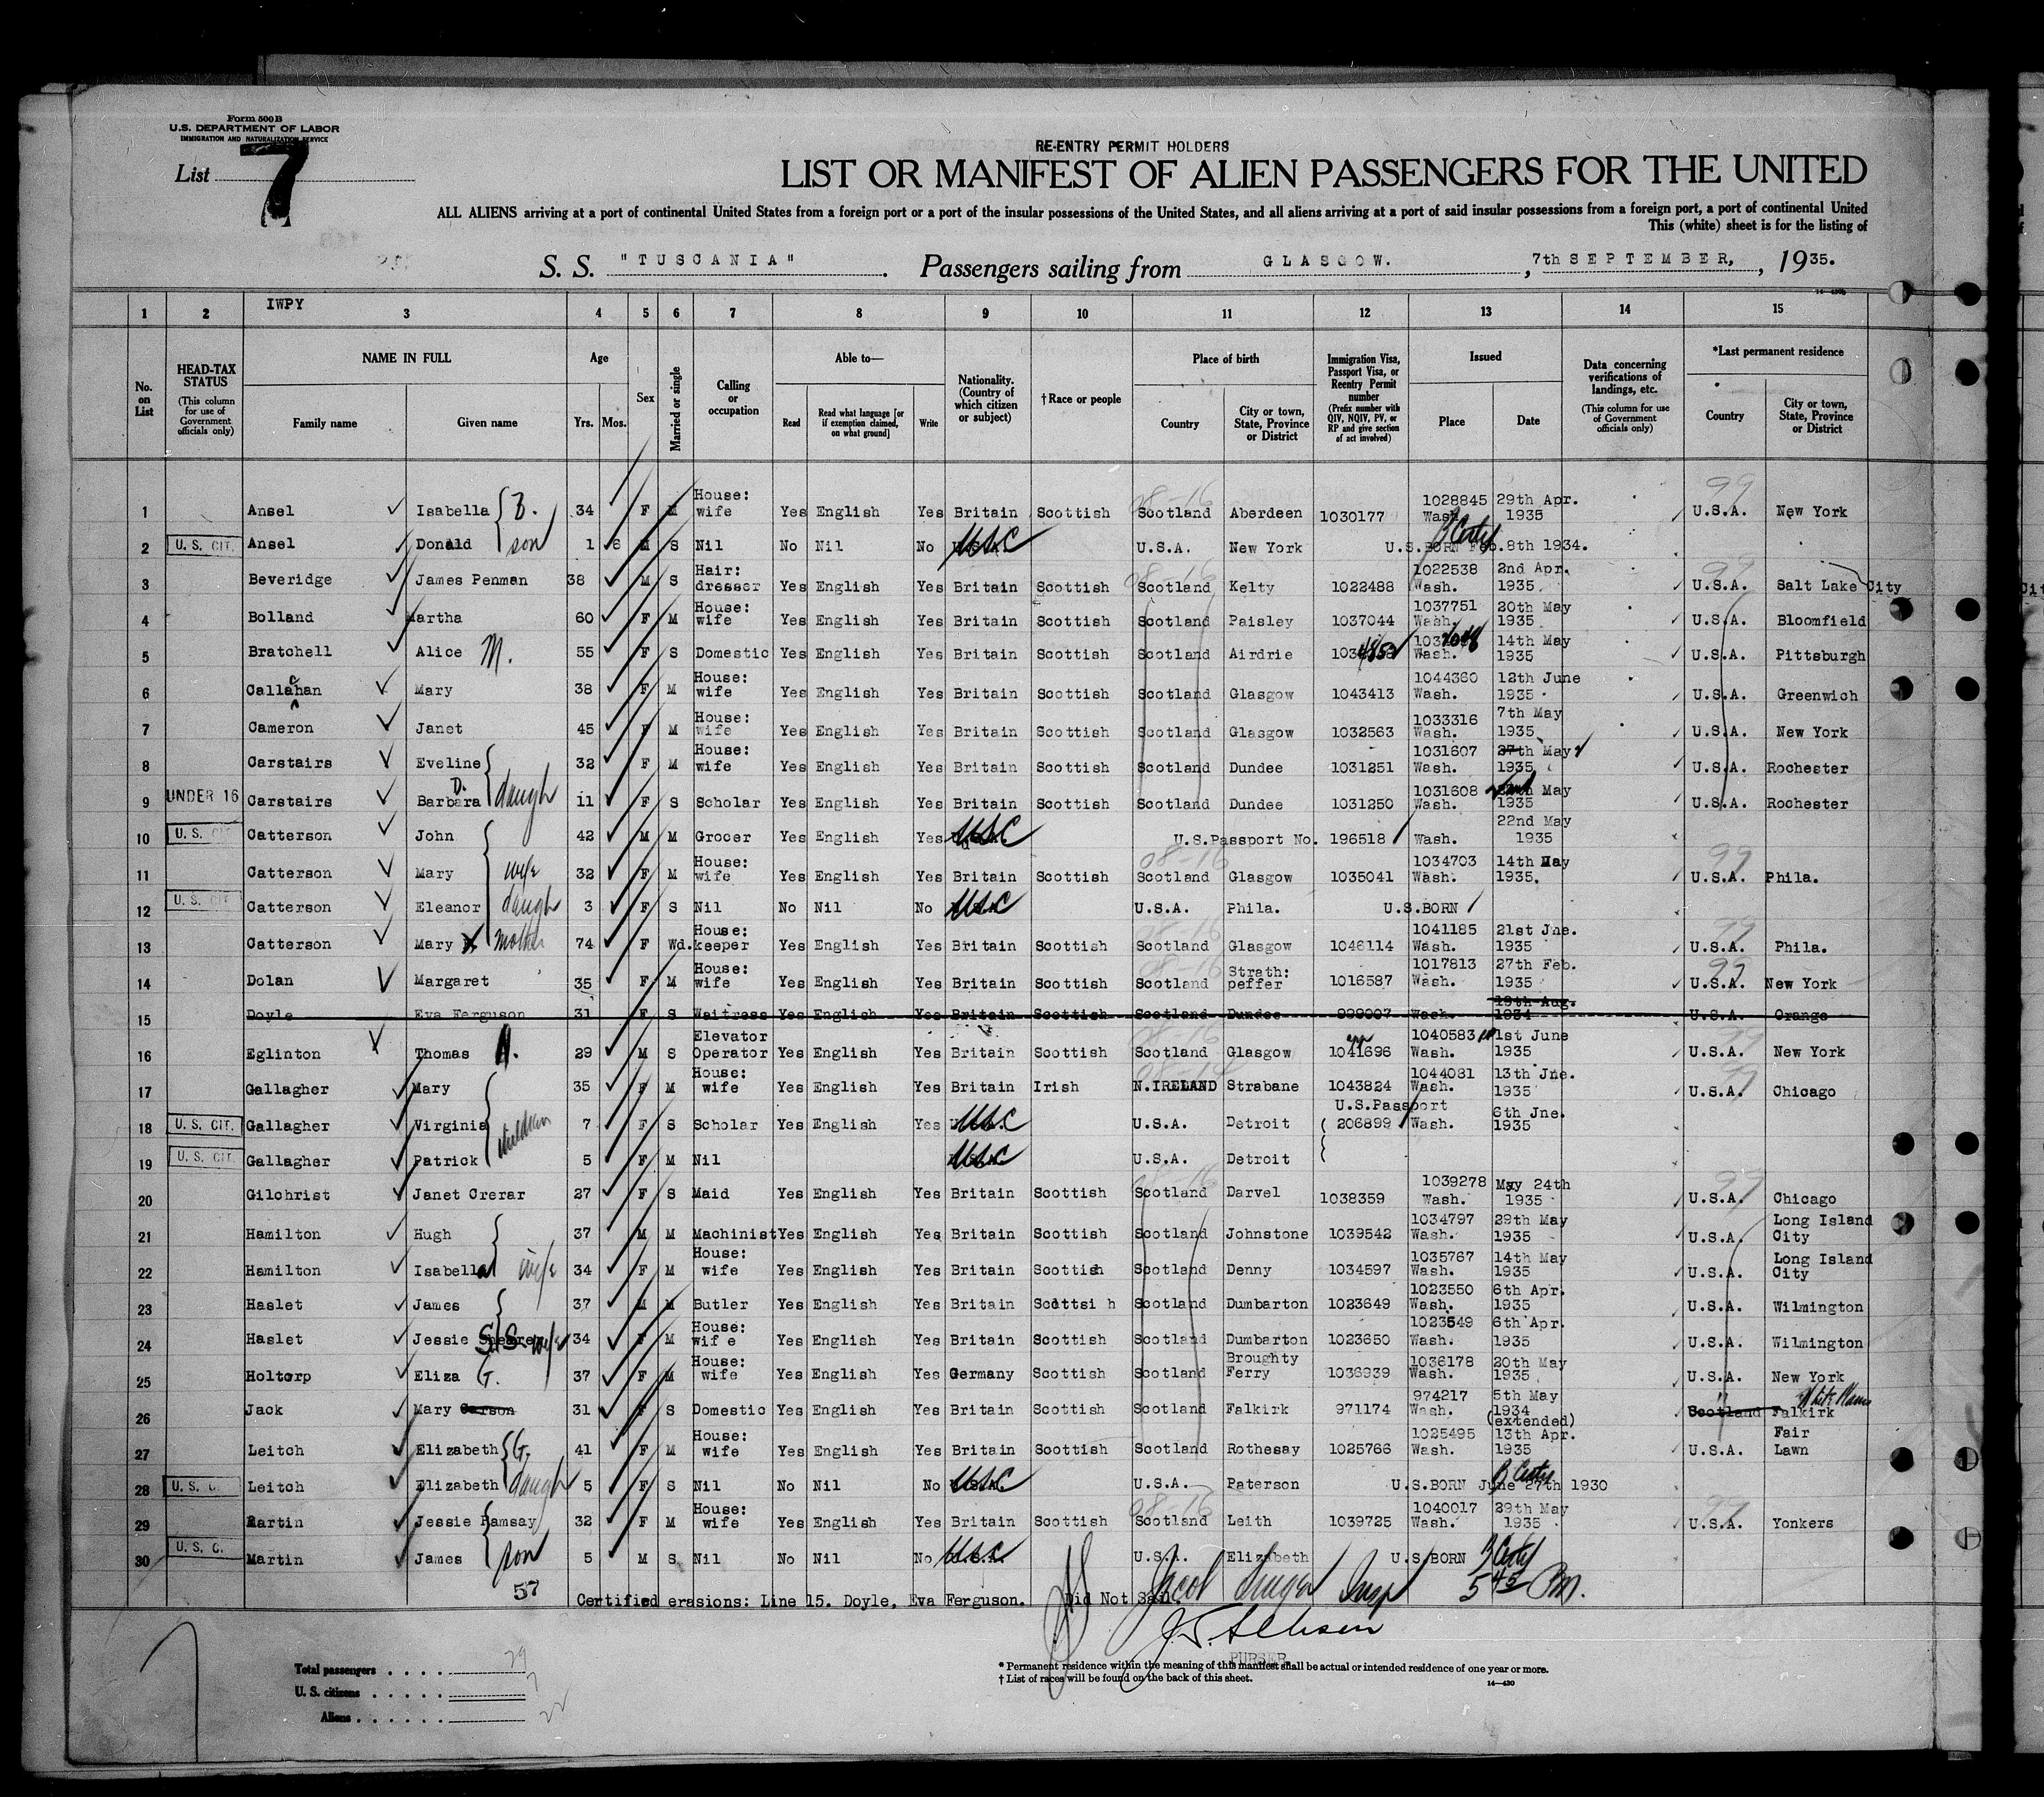 Form 500 B
U.S. DEPARTMENT OF LABOR
IMMIGRATION AND NATURALIZATION SERVICE
List 7
RE-ENTRY PERMIT HOLDERS
LIST OR MANIFEST OF ALIEN PASSENGERS FOR THE UNITED
ALL ALIENS arriving at a port of continental United States from a foreign port or a port of the insular possessions of the United States, and all aliens arriving at a port of said insular possessions from a foreign port, a port of continental United
This (white) sheet is for the listing of
S. S. "TUSCANIA". Passengers sailing from GLASGOW., 7th SEPTEMBER, , 1935.
IWPY
1 2 3 4 5 6 7 8 9 10 11 12 13 14 15
No. on List
HEAD-TAX STATUS (This column for use of Government officials only)
NAME IN FULL Family name Given name
Age Yrs. Mos.
Sex
Married or single
Calling or occupation
Able to— Read Read what language [or if exemption claimed, on what ground] Write
Nationality. (Country of which citizen or subject)
†Race or people
Place of birth Country City or town, State, Province or District
Immigration Visa, Passport Visa, or Reentry Permit number (Prefix number with QIV, NQIV, PV, or RP and give section of act involved)
Issued Place Date
Data concerning verifications of landings, etc. (This column for use of Government officials only)
*Last permanent residence Country City or town, State, Province or District
1 Ansel Isabella B. 34 F M House: wife Yes English Yes Britain Scottish Scotland Aberdeen 1030177 1028845 Wash. 29th Apr. 1935 U.S.A. New York
2 U.S. CIT. Ansel Donald son 1 6 M S Nil No Nil No USC U.S.A. New York U.S.BORN Feb.8th 1934. B Certf
3 Beveridge James Penman 38 M S Hair: dresser Yes English Yes Britain Scottish Scotland Kelty 1022488 1022538 Wash. 2nd Apr. 1935 U.S.A. Salt Lake City
4 Bolland Martha 60 F M House: wife Yes English Yes Britain Scottish Scotland Paisley 1037044 1037751 Wash. 20th May 1935 U.S.A. Bloomfield
5 Bratchell Alice M. 55 F S Domestic Yes English Yes Britain Scottish Scotland Airdrie Wash. 14th May 1935 U.S.A. Pittsburgh
6 Callahan c Mary 38 F M House: wife Yes English Yes Britain Scottish Scotland Glasgow 1043413 1044360 Wash. 12th June 1935 U.S.A. Greenwich
7 Cameron Janet 45 F M House: wife Yes English Yes Britain Scottish Scotland Glasgow 1032563 1033316 Wash. 7th May 1935 U.S.A. New York
8 Carstairs Eveline 32 F M House: wife Yes English Yes Britain Scottish Scotland Dundee 1031251 1031607 Wash. 27th May 1935 U.S.A. Rochester
9 UNDER 16 Carstairs Barbara D. daugh 11 F S Scholar Yes English Yes Britain Scottish Scotland Dundee 1031250 1031608 Wash. May 1935 U.S.A. Rochester
10 U.S. CIT Catterson John 42 M M Grocer Yes English Yes USC U.S.Passport No. 196518 Wash. 22nd May 1935
11 Catterson Mary wife 32 F M House: wife Yes English Yes Britain Scottish Scotland Glasgow 1035041 1034703 Wash. 14th May 1935. U.S.A. Phila.
12 U.S. CIT Catterson Eleanor daugh 3 F S Nil No Nil No USC U.S.A. Phila. U.S.BORN
13 Catterson Mary mother 74 F Wd. House: keeper Yes English Yes Britain Scottish Scotland Glasgow 1046114 1041185 Wash. 21st Jne. 1935 U.S.A. Phila.
14 Dolan Margaret 35 F M House: wife Yes English Yes Britain Scottish Scotland Strath: peffer 1016587 1017813 Wash. 27th Feb. 1935 U.S.A. New York
15 Doyle Eva Ferguson 31 F S Waitress Yes English Yes Britain Scottish Scotland Dundee 999007 Wash. 19th Aug. 1934 U.S.A. Orange
16 Eglinton Thomas A. 29 M S Elevator Operator Yes English Yes Britain Scottish Scotland Glasgow 1041696 1040583 Wash. 1st June 1935 U.S.A. New York
17 Gallagher Mary 35 F M House: wife Yes English Yes Britain Irish N.IRELAND Strabane 1043824 1044081 Wash. 13th Jne. 1935 U.S.A. Chicago
18 U.S. CIT. Gallagher Virginia children 7 F S Scholar Yes English Yes USC U.S.A. Detroit U.S.Passport 206899 Wash. 6th Jne. 1935
19 U.S. CIT. Gallagher Patrick 5 F M Nil USC U.S.A. Detroit
20 Gilchrist Janet Crerar 27 F S Maid Yes English Yes Britain Scottish Scotland Darvel 1038359 1039278 Wash. May 24th 1935 U.S.A. Chicago
21 Hamilton Hugh 37 M M Machinist Yes English Yes Britain Scottish Scotland Johnstone 1039542 1034797 Wash. 29th May 1935 U.S.A. Long Island City
22 Hamilton Isabella wife 34 F M House: wife Yes English Yes Britain Scottish Scotland Denny 1034597 1035767 Wash. 14th May 1935 U.S.A. Long Island City
23 Haslet James 37 M M Butler Yes English Yes Britain Scottsi h Scotland Dumbarton 1023649 1023550 Wash. 6th Apr. 1935 U.S.A. Wilmington
24 Haslet Jessie Shearer S. wife 34 F M House: wif e Yes English Yes Britain Scottish Scotland Dumbarton 1023650 1023549 Wash. 6th Apr. 1935 U.S.A. Wilmington
25 Holtorp Eliza G. 37 F M House: wife Yes English Yes Germany Scottish Scotland Broughty Ferry 1036939 1036178 Wash. 20th May 1935 U.S.A. New York
26 Jack Mary Carson 31 F S Domestic Yes English Yes Britain Scottish Scotland Falkirk 971174 974217 Wash. 5th May 1934 (extended) Scotland Falkirk White Plains
27 Leitch Elizabeth G. 41 F M House: wife Yes English Yes Britain Scottish Scotland Rothesay 1025766 1025495 Wash. 13th Apr. 1935 U.S.A. Fair Lawn
28 U.S. C. Leitch Elizabeth daugh 5 F S Nil No Nil No USC U.S.A. Paterson U.S.BORN June 27th 1930 B Certf
29 Martin Jessie Ramsay 32 F M House: wife Yes English Yes Britain Scottish Scotland Leith 1039725 1040017 Wash. 29th May 1935 U.S.A. Yonkers
30 U.S. C. Martin James son 5 M S Nil No Nil No USC U.S.A. Elizabeth U.S.BORN B Certf
57 Certified erasions: Line 15. Doyle, Eva Ferguson. Did Not Sail.
Jacob Insp 5 45 PM.
PURSER
Total passengers . . . . 29
U. S. citizens . . . . . 7
Aliens . . . . . . 22
* Permanent residence within the meaning of this manifest shall be actual or intended residence of one year or more.
† List of races will be found on the back of this sheet.
14—430